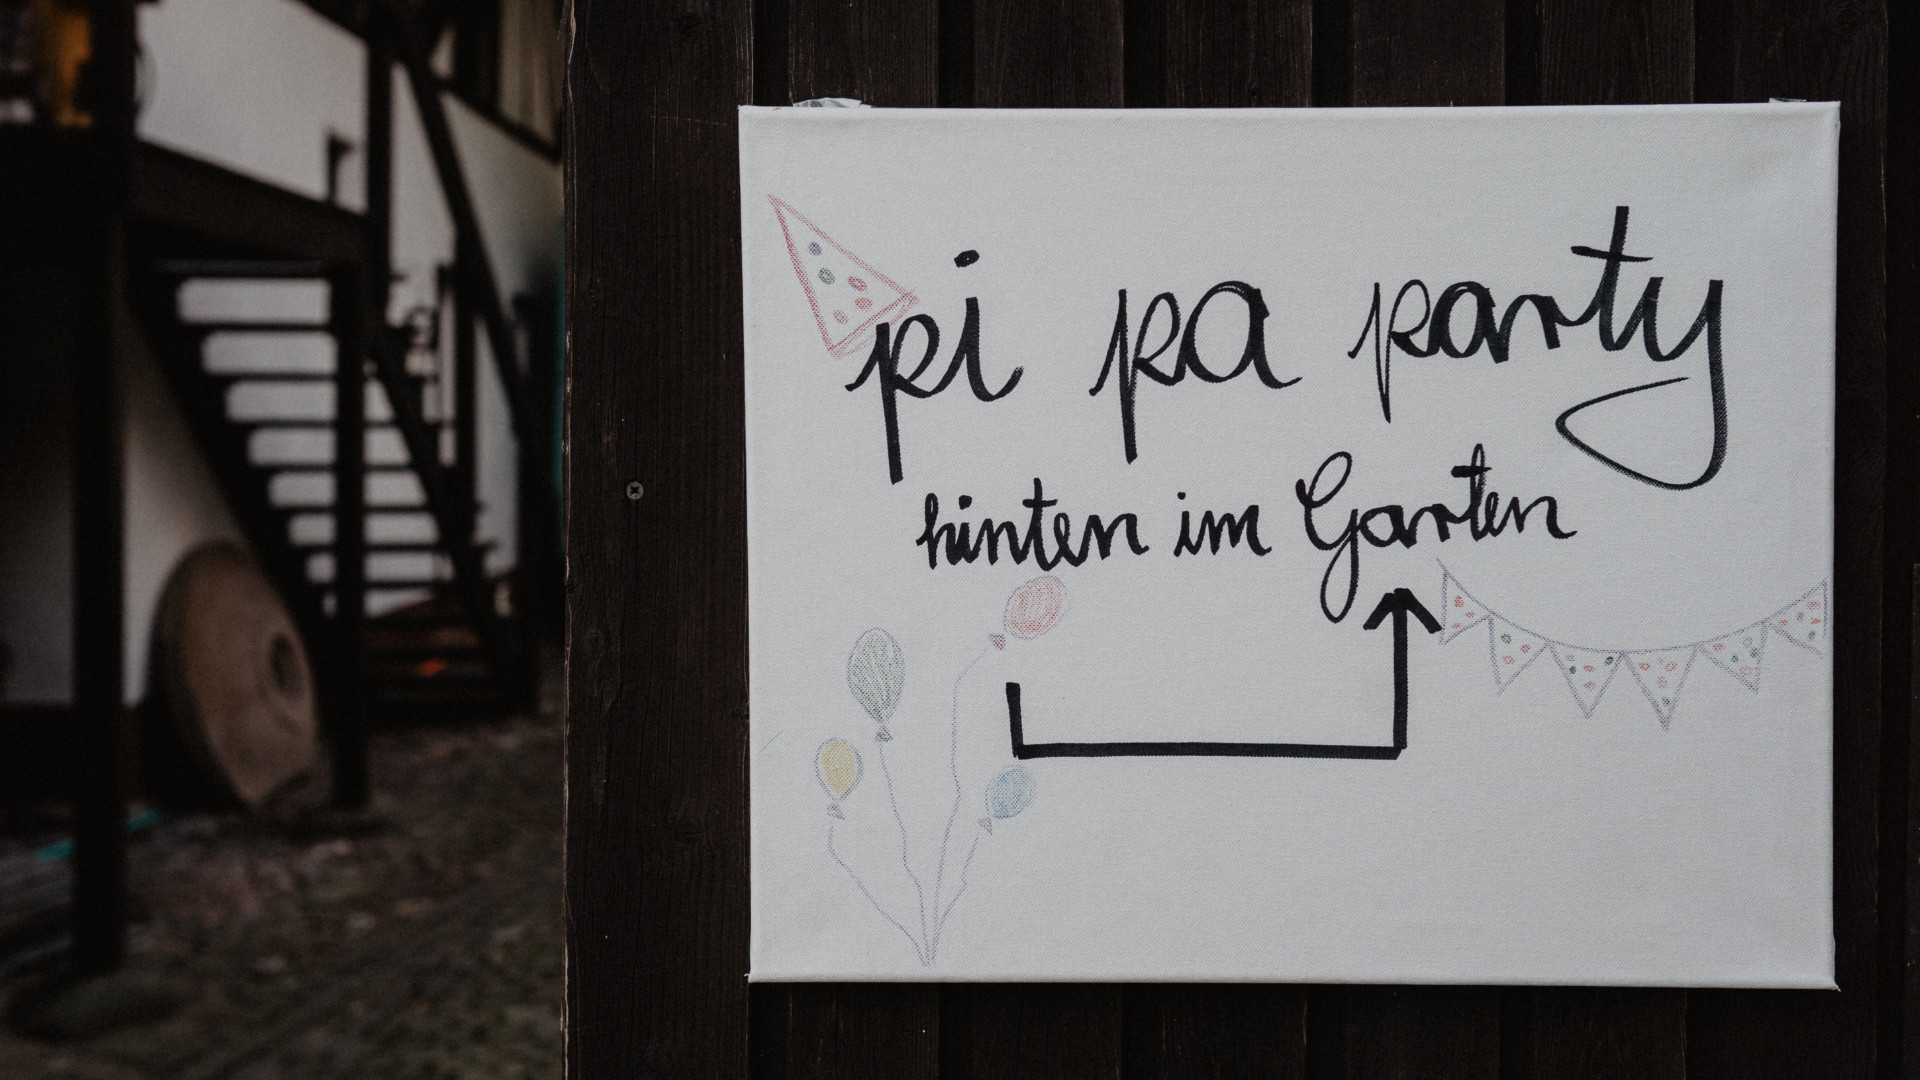 pi pa party
hinten im Garten